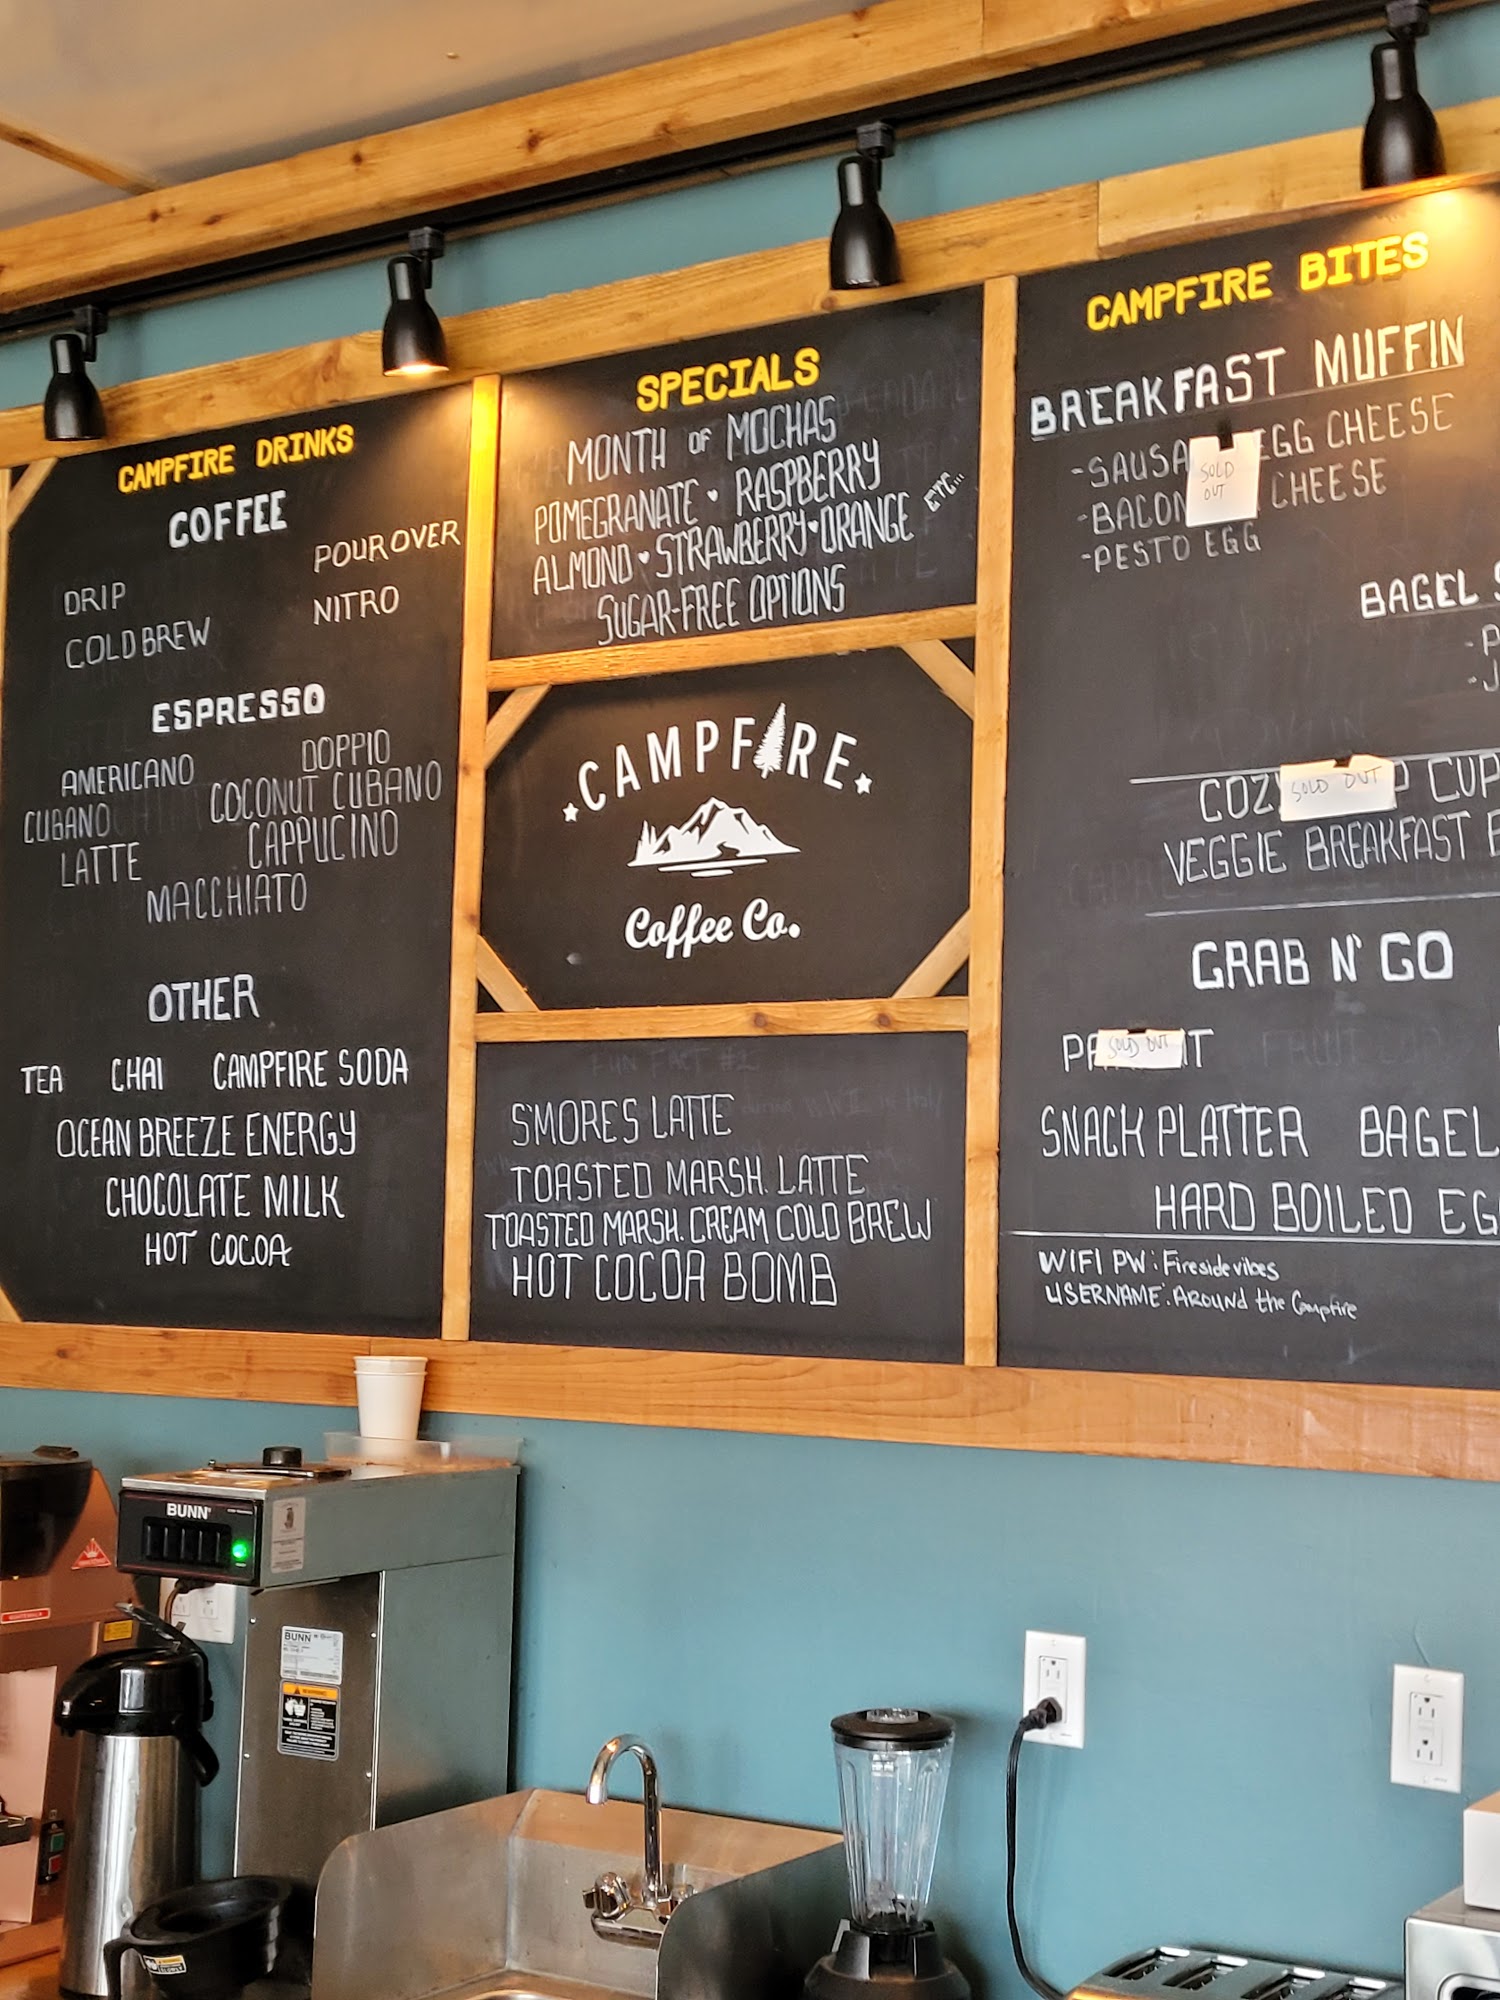 CAMPFIRE DRINKS
COFFEE
POUR OVER
DRIP
NITRO
COLD BREW
ESPRESSO
DOPPIO
AMERICANO
COCONUT CUBANO
CUBANO
CAPPUCINO
LATTE
MACCHIATO
OTHER
TEA CHAI CAMPFIRE SODA
OCEAN BREEZE ENERGY
CHOCOLATE MILK
HOT COCOA
SPECIALS
MONTH OF MOCHAS
POMEGRANATE • RASPBERRY
ALMOND ♥ STRAWBERRY ♥ ORANGE ETC...
SUGAR-FREE OPTIONS
CAMPFIRE
Coffee Co.
FUN FACT #2
S'MORES LATTE
TOASTED MARSH. LATTE
TOASTED MARSH. CREAM COLD BREW
HOT COCOA BOMB
CAMPFIRE BITES
BREAKFAST MUFFIN
-SAUSA EGG CHEESE
SOLD
OUT
-BACON CHEESE
-PESTO EGG
BAGEL S
-P
-J
COZY CUP
SOLD OUT
VEGGIE BREAKFAST B
GRAB N' GO
PA T
SOLD OUT
SNACK PLATTER BAGEL
HARD BOILED EG
WIFI PW: Firesidevibes
USERNAME: AROUND the Campfire
BUNN
BUNN